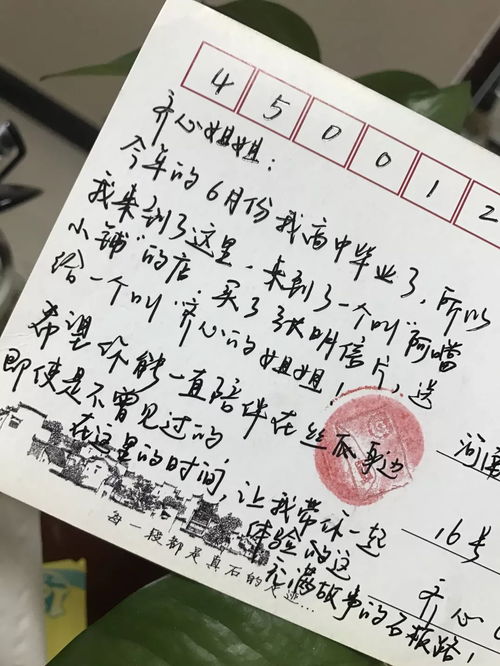 4 5 0 0 1 2
齐心姐姐：
今年的6月份我高中毕业了，所以
我来到了这里，来到了一个叫“阿噹
小铺”的店，买了张明信片，送
给一个叫“齐心的姐姐！
希望你能一直陪伴在丝瓜身边
即使是不曾见过的
在这里的时间，让我带你一起
体验的这
充满故事的石板路，
河南
16号
齐心
每一段都是真石的足迹...